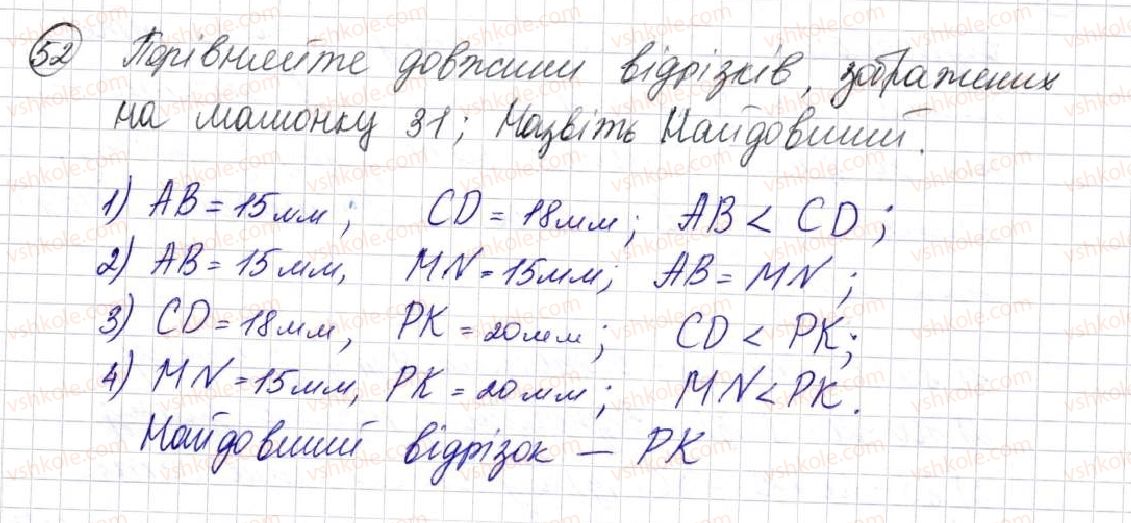 52 Порівняйте довжини відрізків, зображених
на малюнку 31; Назвіть Найдовший.
1) AB = 15мм; CD = 18мм; AB < CD;
2) AB = 15мм, MN = 15мм; AB = MN;
3) CD = 18мм, PK = 20мм; CD < PK;
4) MN = 15мм, PK = 20мм; MN < PK.
Найдовший відрізок – PK